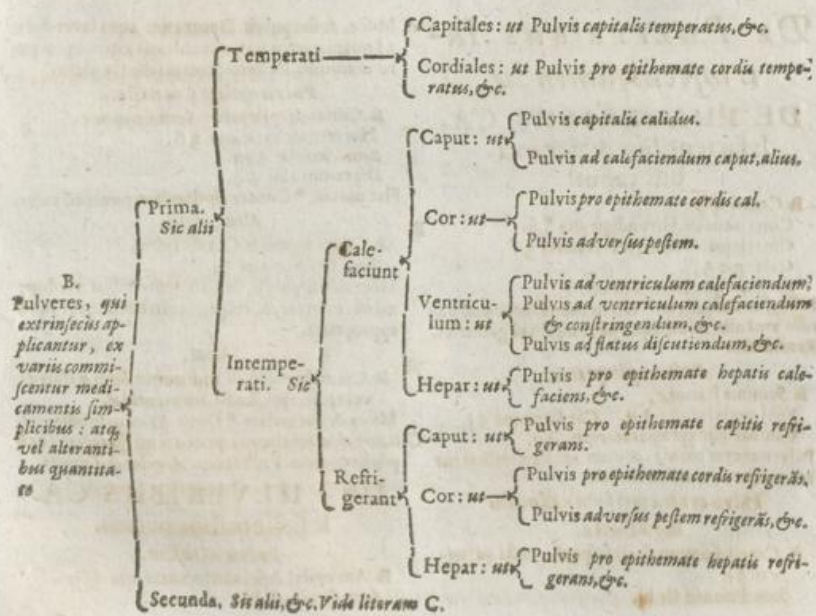 B.
Pulveres, qui
extrinsecùs ap-
plicantur, ex
variis commi-
scentur medi-
camentis sim-
plicibus: atq́
vel alteranti-
bus quantita-
te
Prima.
Sic alii
Temperati
Capitales: ut Pulvis capitalis temperatus, &c.
Cordiales: ut Pulvis pro epithemate cordis tempe-
ratus, &c.
Intempe-
rati. Sic
Cale-
faciunt
Caput: ut
Pulvis capitalis calidus.
Pulvis ad calefaciendum caput, alius.
Cor: ut
Pulvis pro epithemate cordis cal.
Pulvis adversus pestem.
Ventricu-
lum: ut
Pulvis ad ventriculum calefaciendum.
Pulvis ad ventriculum calefaciendum
& constringendum, &c.
Pulvis ad flatus discutiendum, &c.
Hepar: ut
Pulvis pro epithemate hepatis cale-
faciens, &c.
Refri-
gerant
Caput: ut
Pulvis pro epithemate capitis refri-
gerans.
Cor: ut
Pulvis pro epithemate cordis refrigerãs.
Pulvis adversus pestem refrigerãs, &c.
Hepar: ut
Pulvis pro epithemate hepatis refri-
gerans, &c.
Secunda. Sic alii, &c. Vide literam C.